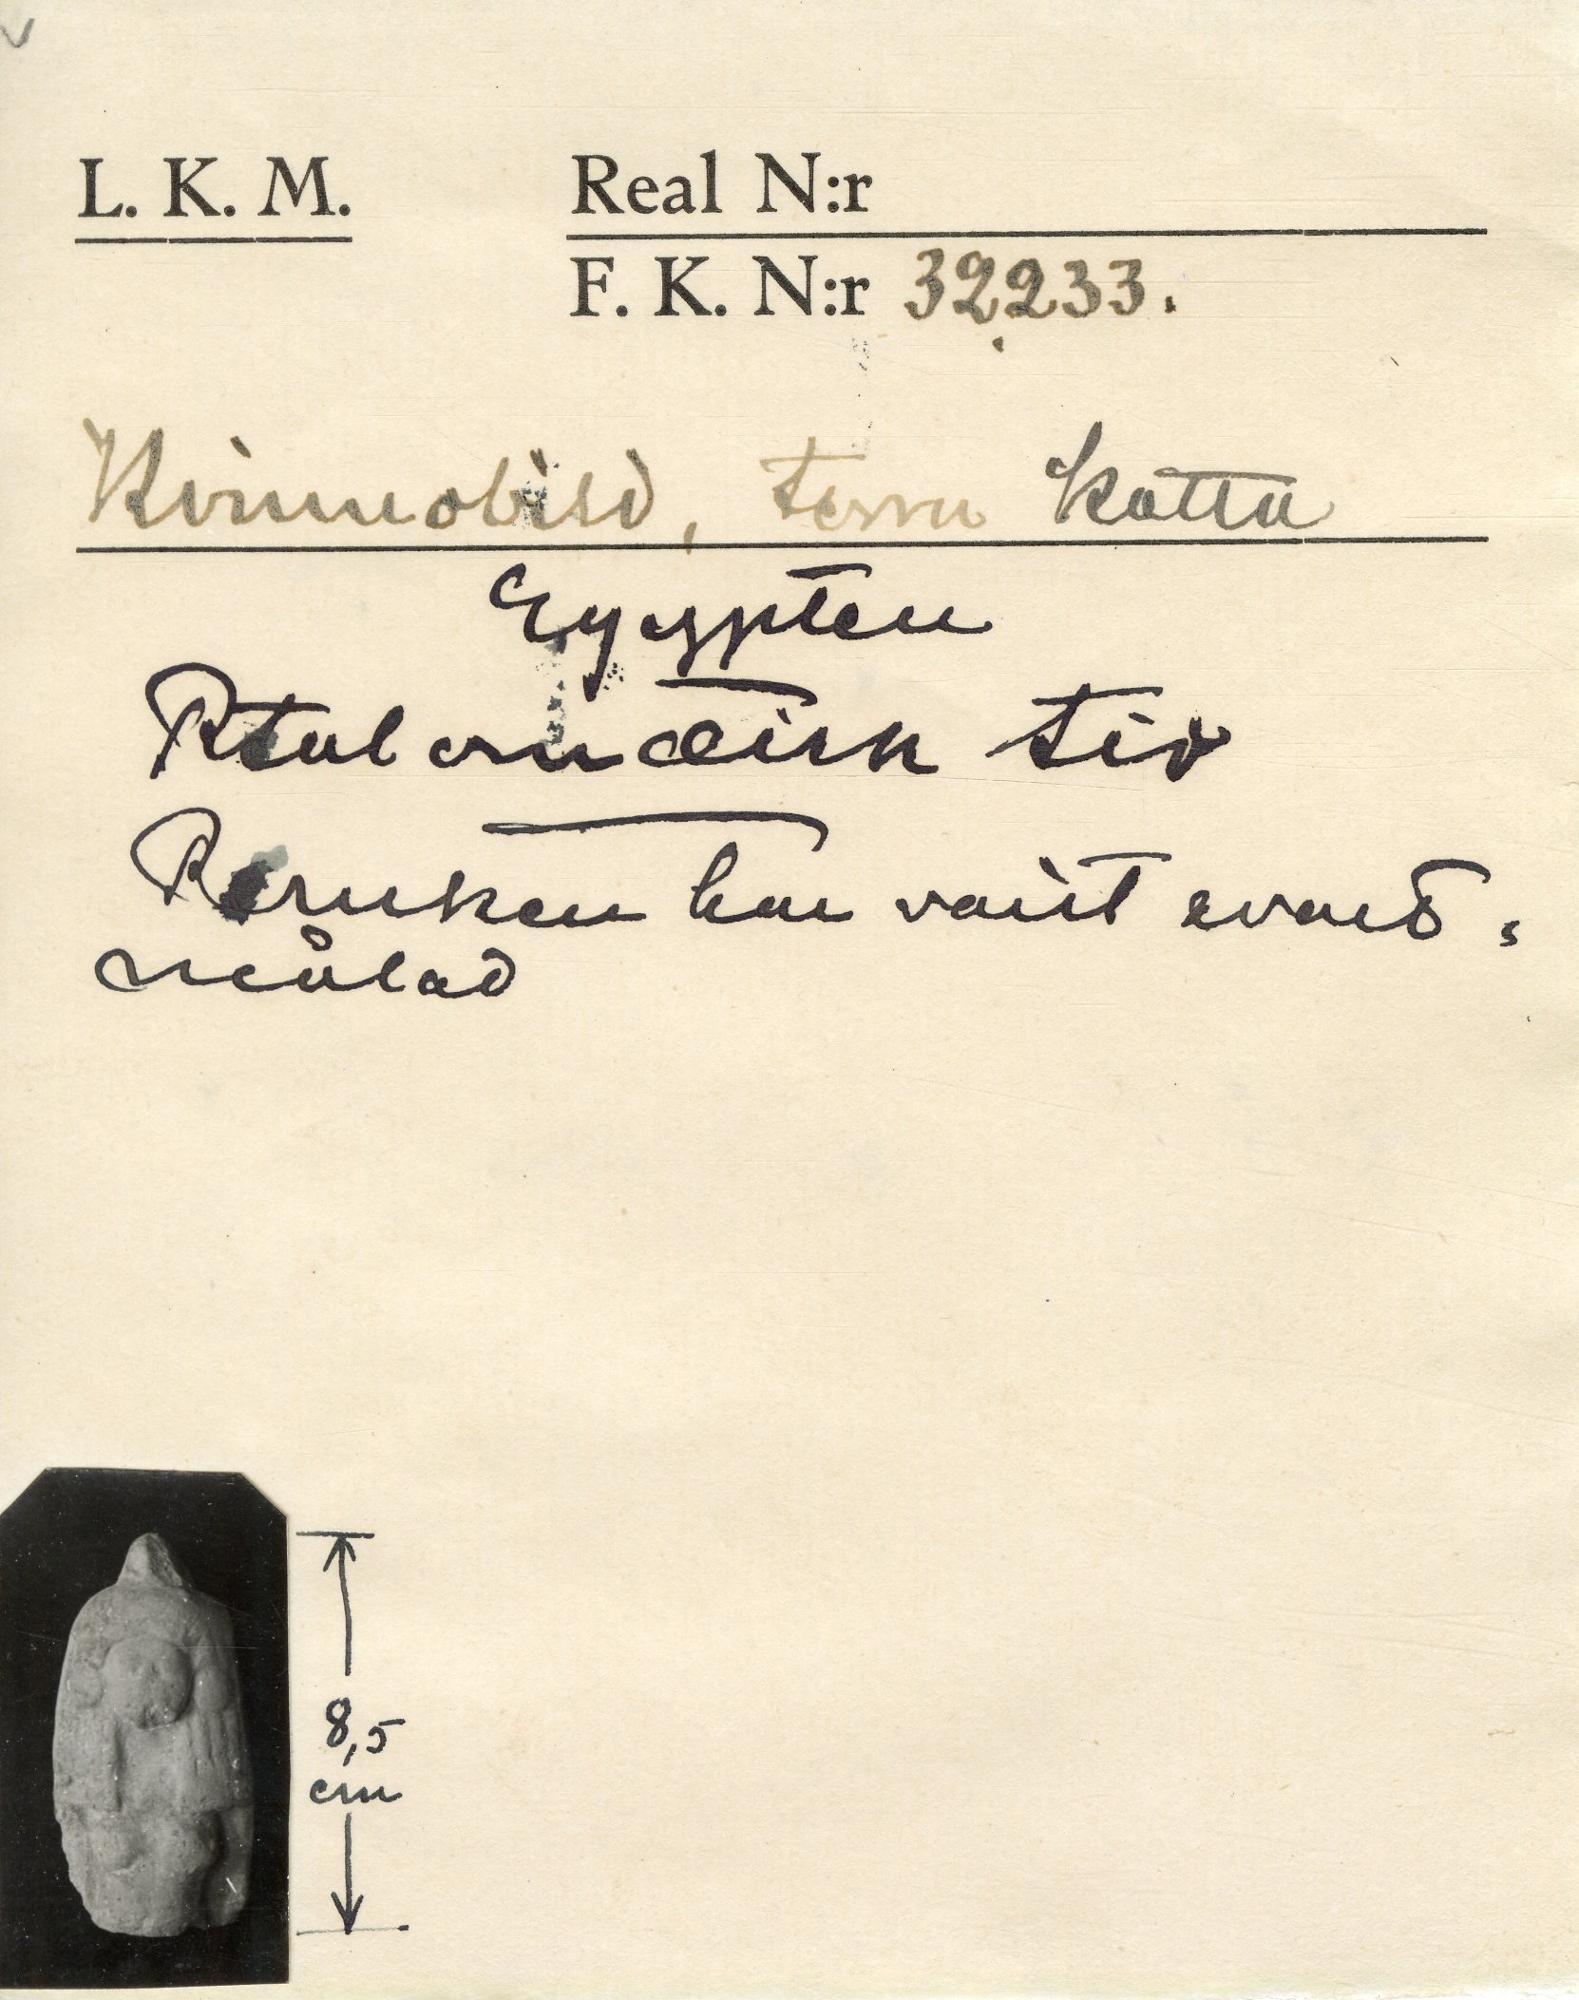 L. K. M.
Real N:r
F. K. N:r 32233.
Kvinnobild, terra kotta
Egypten
Ptolemæisk tid
Peruken har varit svart-
målad
8,5
cm